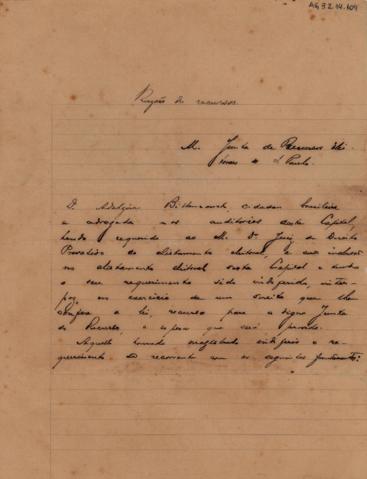 AG 32.04.109
Razões de recurso.
M. Junta de Recursos Elei
toraes de S. Paulo.
D. Adalzira Bittencourt, cidadan brasileira
e advogada nos auditorios desta Capital,
tendo requerido ao M. Dr. Juiz de Direito
Presidio do alistamento eleitoral, a sua inclusão
no alistamento eleitoral desta Capital e tendo
o seu requerimento sido indeferido, inter-
poz, no exercicio de um direito que lhe
confere a lei, recurso para a digna Junta
de Recursos, e espera que será provido.
Aquelle honrado magistrado indeferio o re-
querimento da recorrente com os seguintes fundamentos: